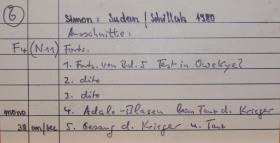 6 Simon: Sudan / Schilluk 1980
Ausschnitte:
F4 (N11) Forts.
1. Forts. von Bd. 5 Text in
2. dito
3. dito
mono 4. Adalo-Blasen beim Tanz d. Krieger
38 cm/sec 5. Gesang d. Krieger u. Tanz